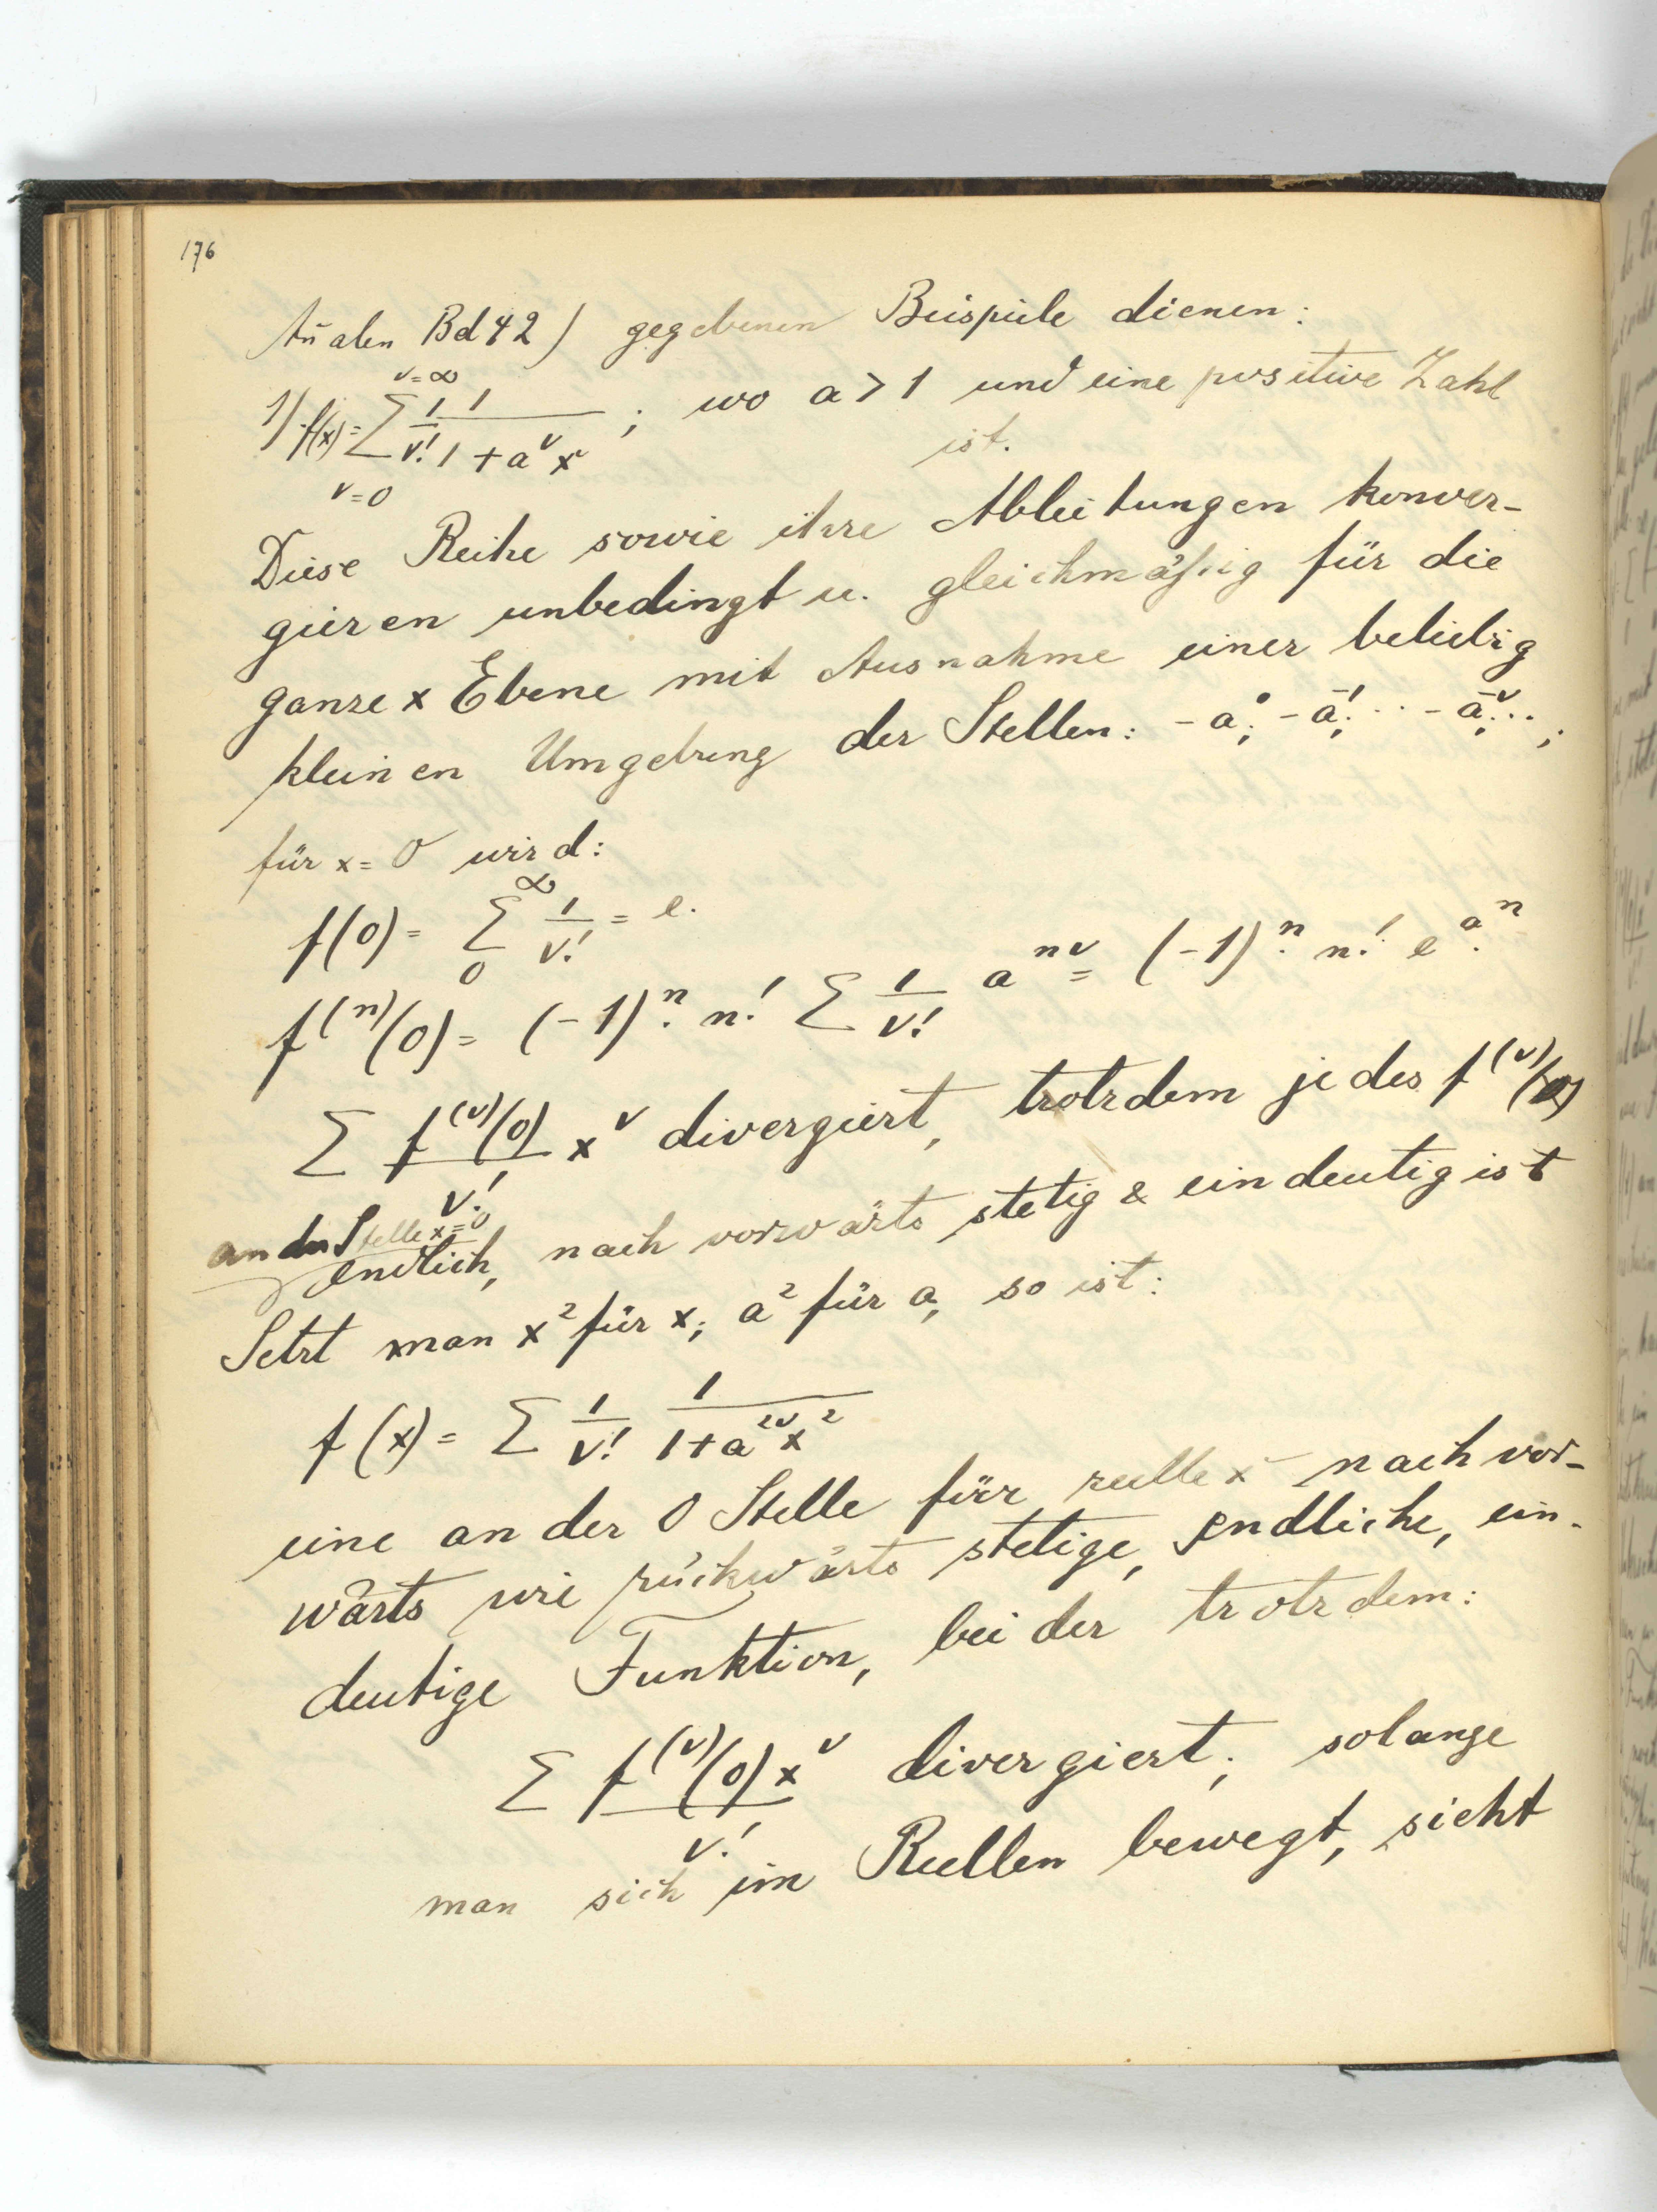 176
An̄alen Bd 42) gegebenen Beispiele dienen:
1) f(x) = ∑_{ν=0}^{ν=∞} 1/ν! 1/(1+a^ν x) ; wo a > 1 und eine positive Zahl
ist.
Diese Reihe sowie ihre Ableitungen konver-
gieren unbedingt u. gleichmäßig für die
ganze x Ebene mit Ausnahme einer beliebig
kleinen Umgebung der Stellen: -a^0; -a^{-1}; ·· -a^{-ν}; ··;
für x = 0 wird:
f(0) = ∑_0^∞ 1/ν! = e.
f^{(n)}(0) = (-1)^n. n! ∑ 1/ν! a^{nν} = (-1)^n. n! e^{a^n}.
∑ f^{(ν)}(0)/ν! x^ν divergiert, trotzdem jedes f^{(ν)}(x)
an der Stelle x=0
endlich, nach vorwärts stetig & eindeutig ist
Setzt man x² für x; a² für a, so ist:
f(x) = ∑ 1/ν! 1/(1+a^{2ν}x²)
eine an der 0 Stelle für reelle x nach vor-
wärts wie rückwärts stetige, endliche, ein-
deutige Funktion, bei der trotzdem:
∑ f^{(ν)}(0)x^ν/ν! divergiert; solange
man sich im Reellen bewegt, sieht